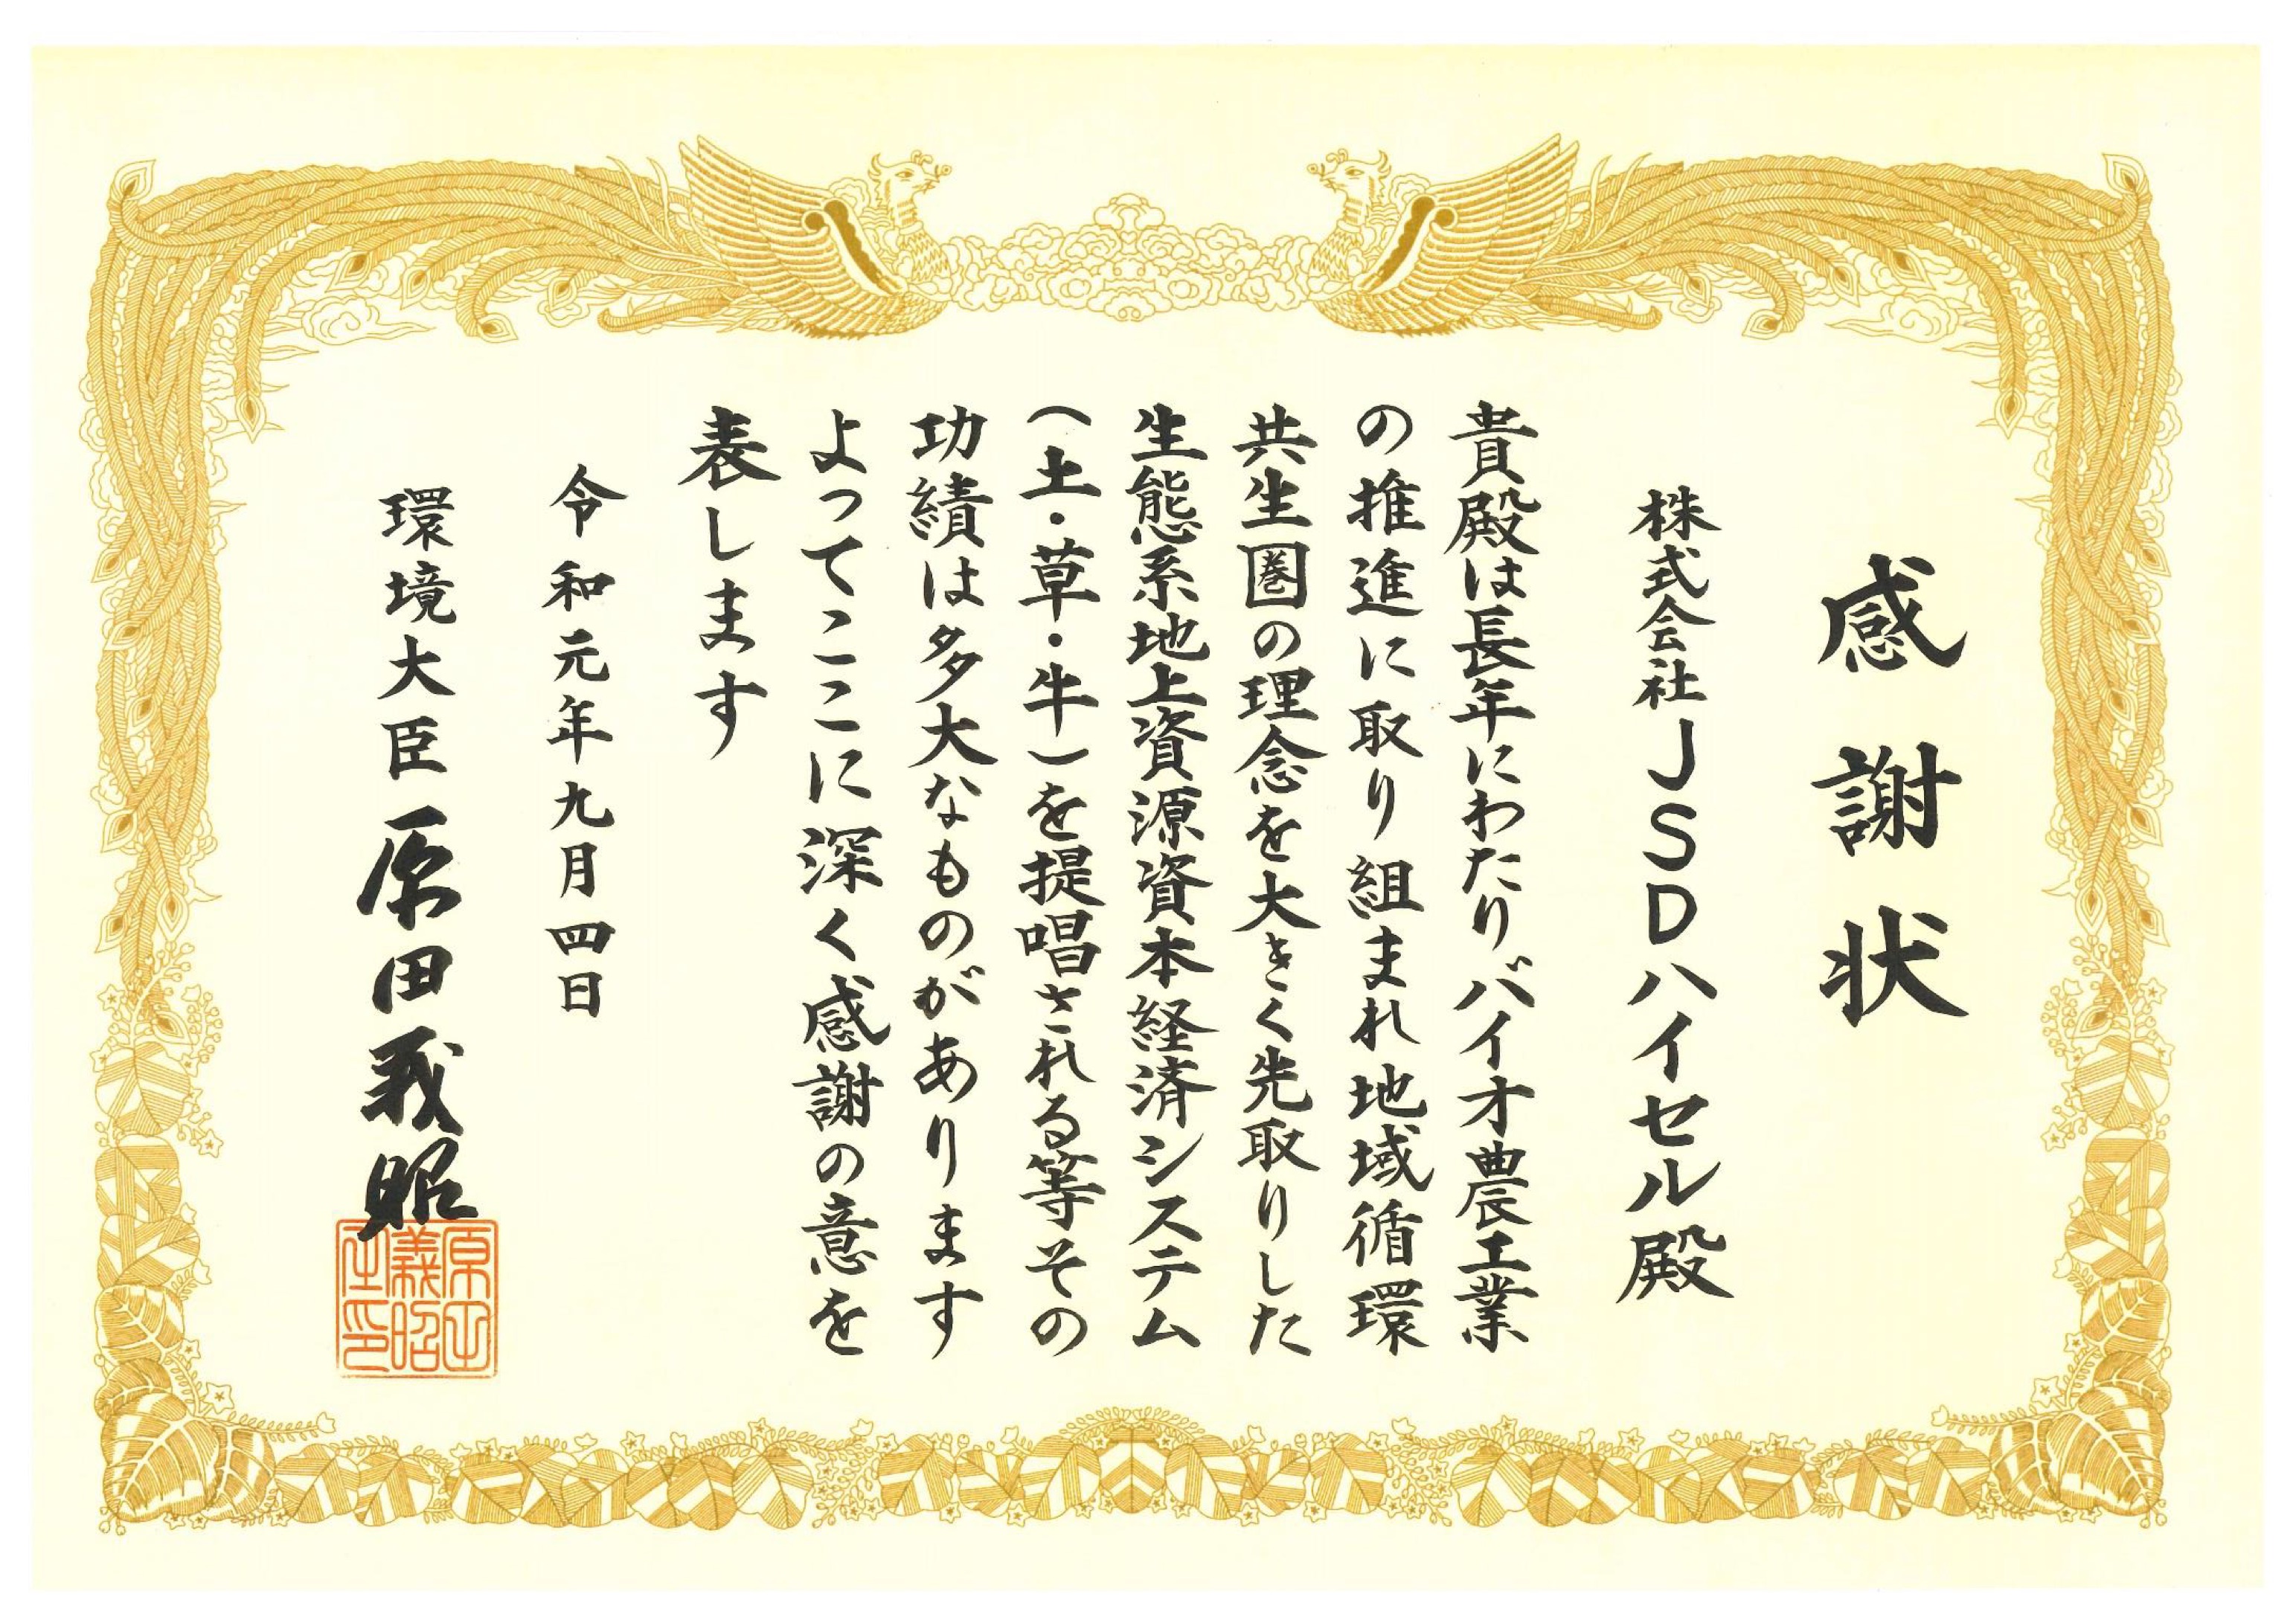 感謝状
株式会社JSDハイセル殿
貴殿は長年にわたりバイオ農工業
の推進に取り組まれ地域循環
共生圏の理念を大きく先取りした
生態系地上資源資本経済システム
(土・草・牛)を提唱される等その
功績は多大なものがあります
よってここに深く感謝の意を
表します
令和元年九月四日
環境大臣 原田義昭
原田
義昭
之印